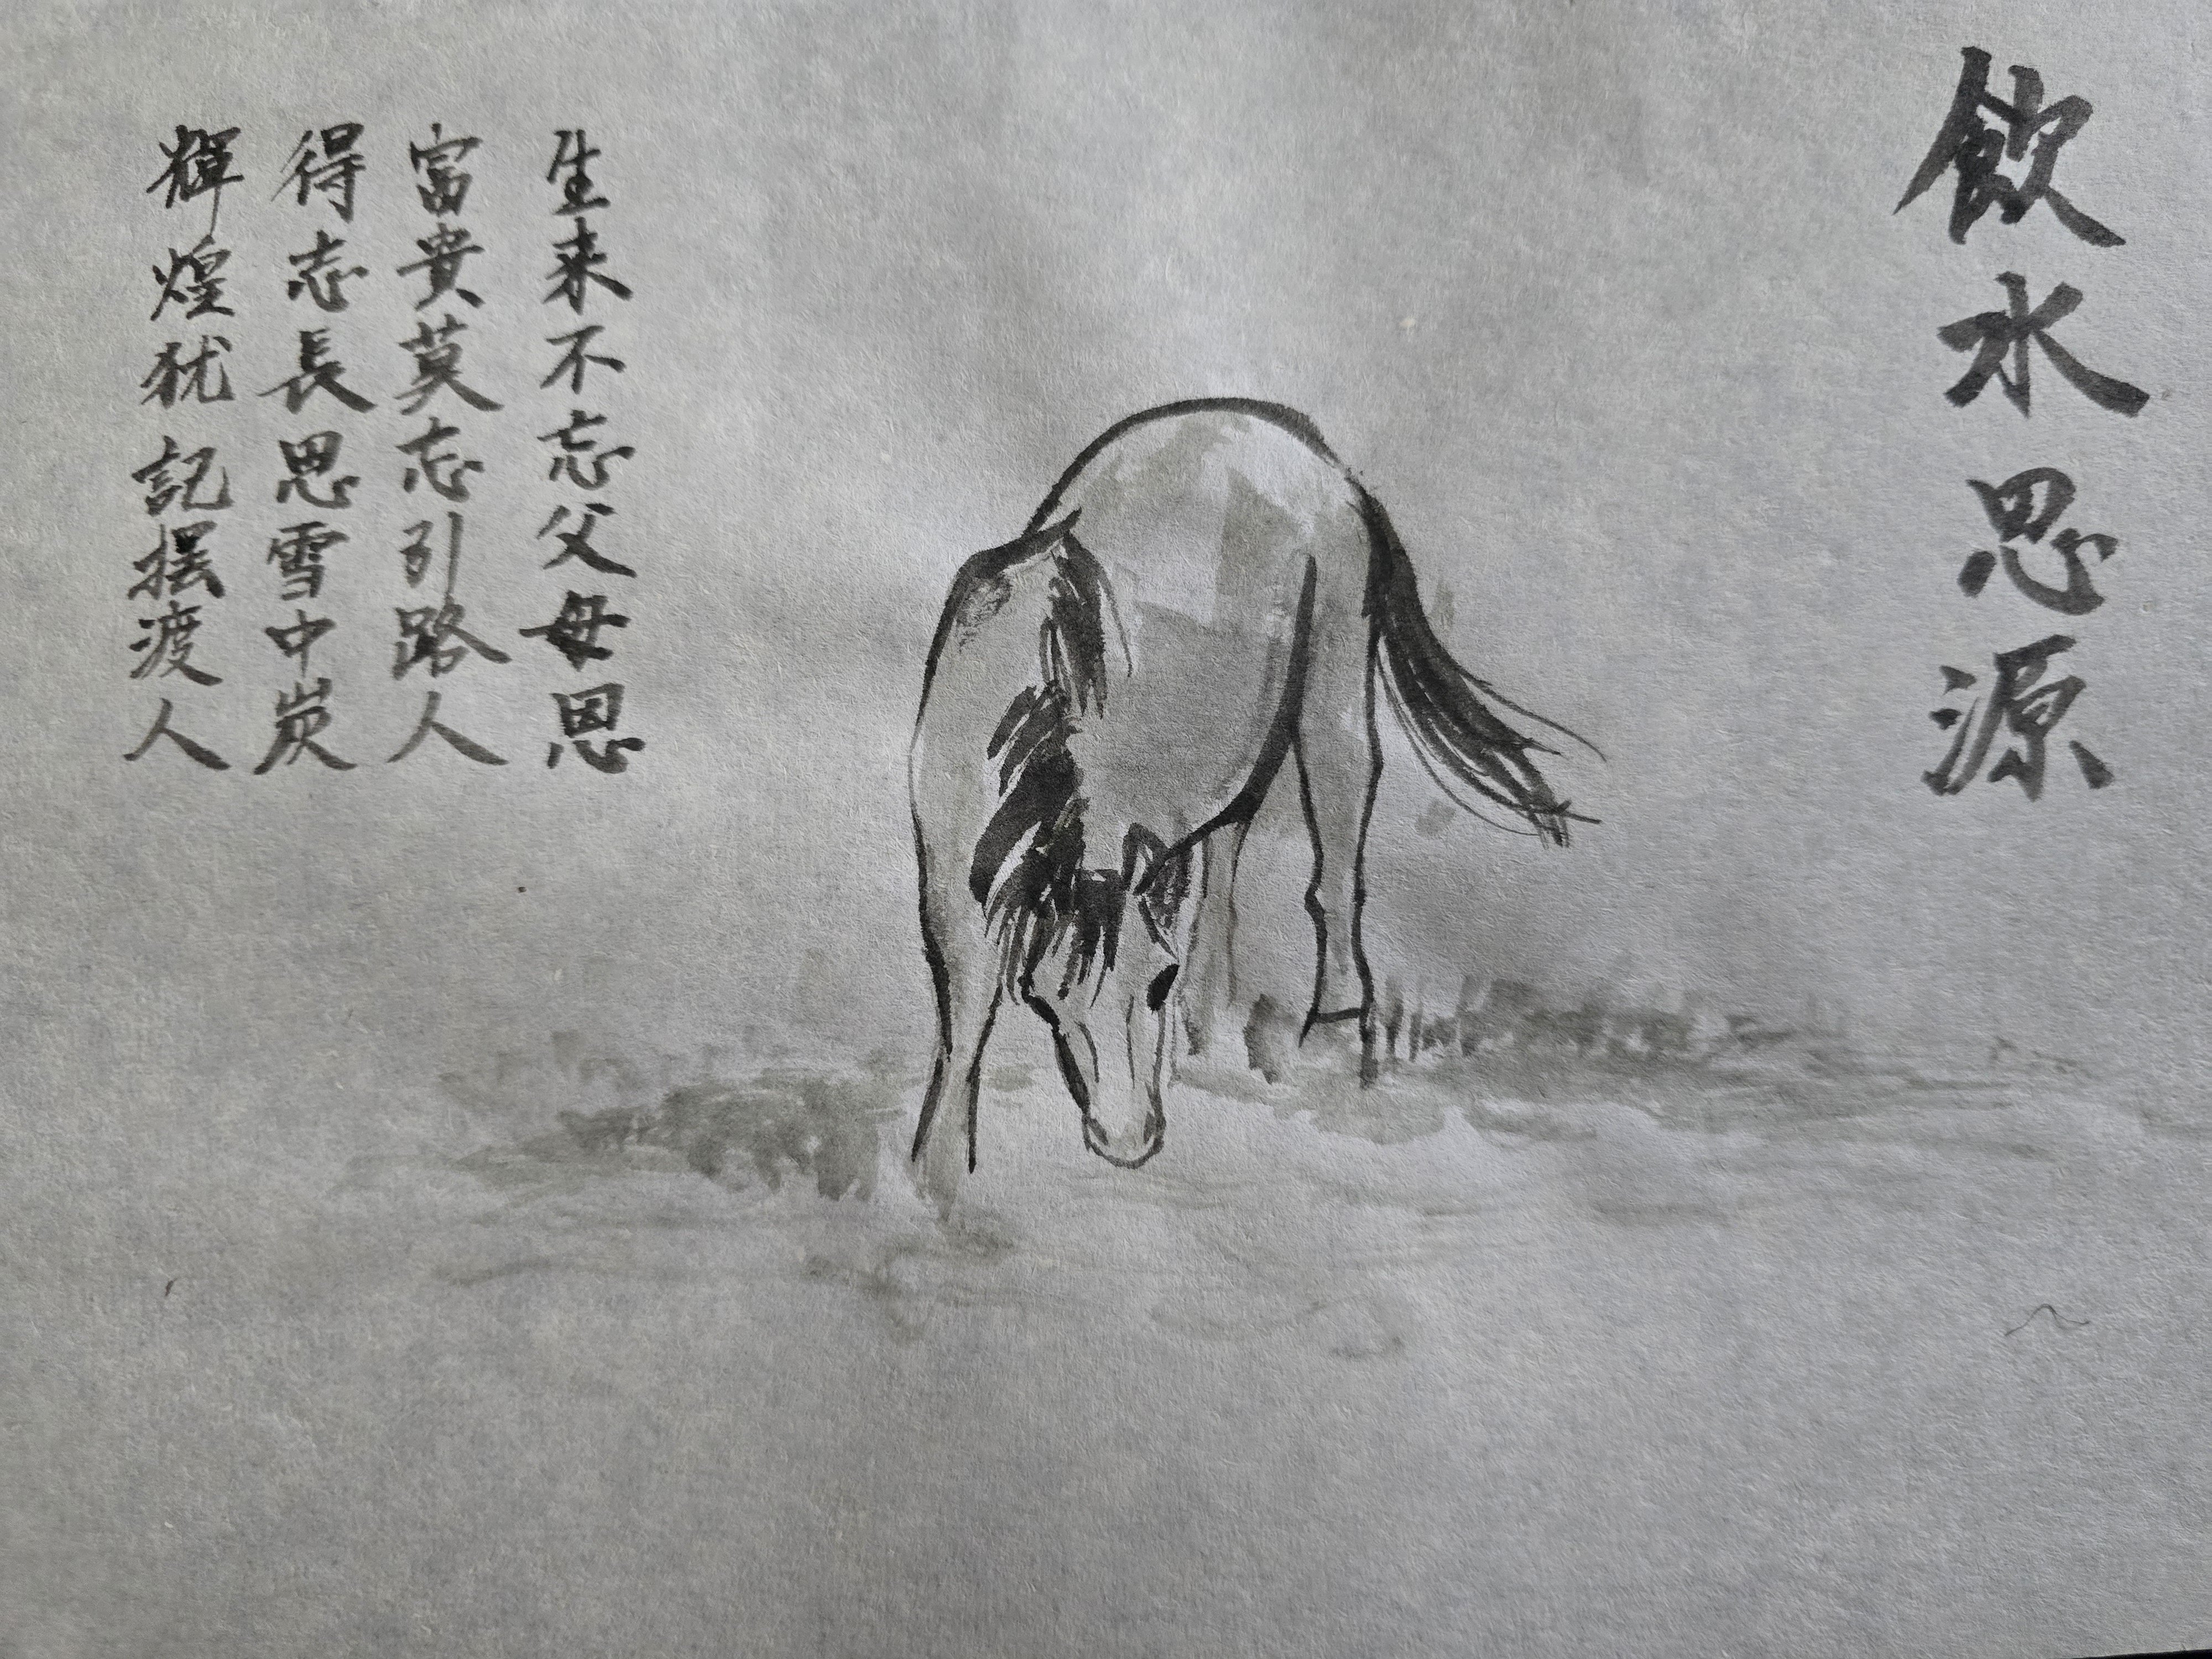 飲水思源
生来不忘父母恩
富貴莫忘引路人
得志長思雪中炭
輝煌犹記摆渡人